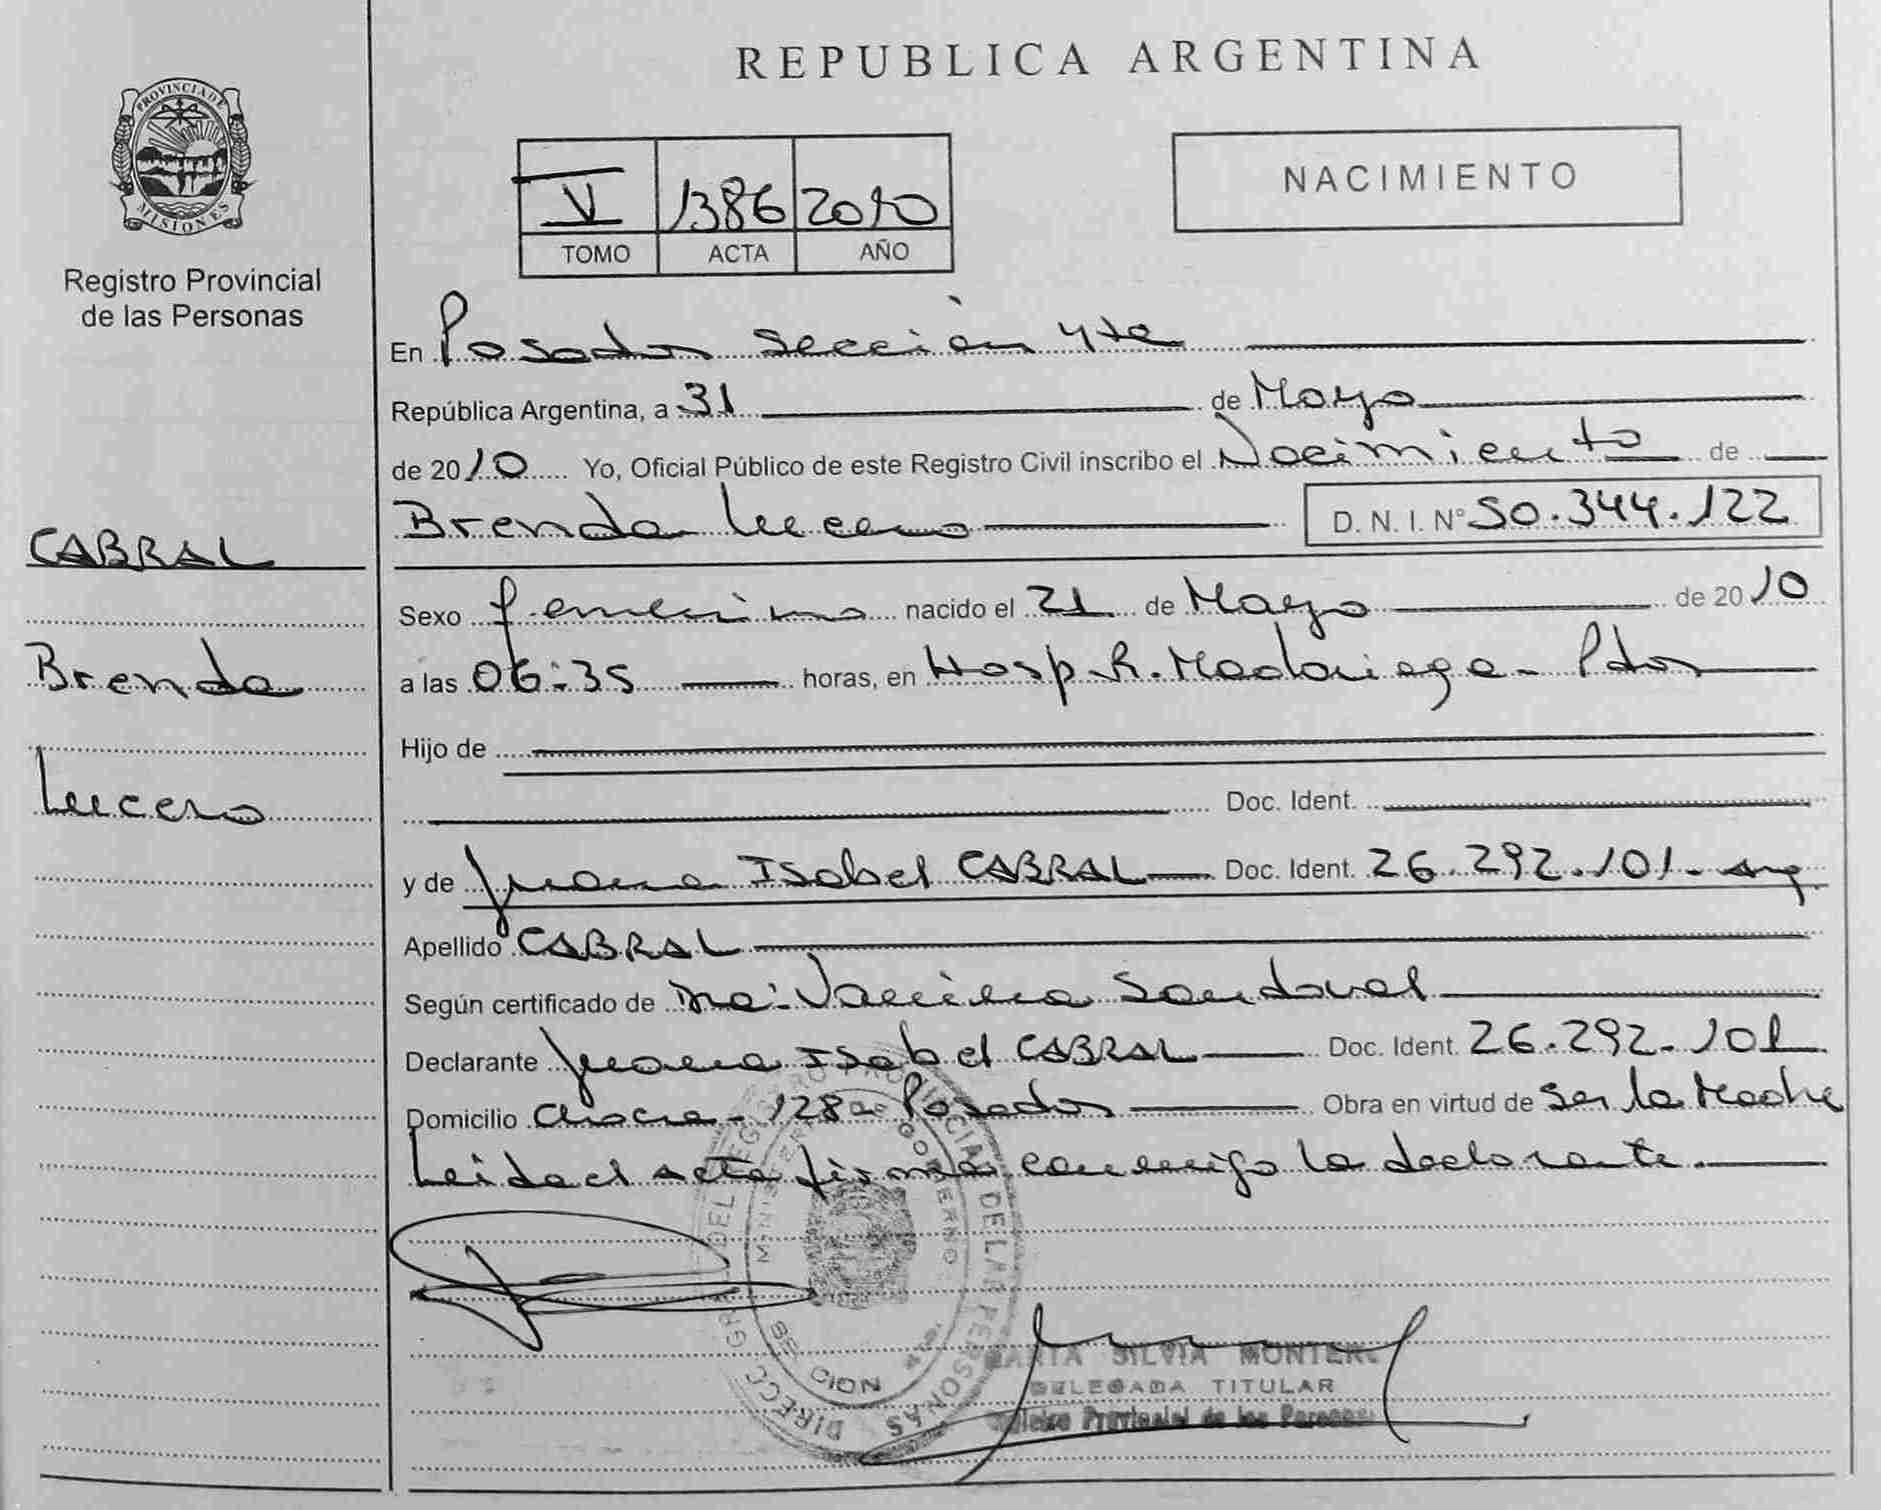 REPUBLICA ARGENTINA
PROVINCIA DE MISIONES
Registro Provincial
de las Personas
V 1386 2010
TOMO ACTA AÑO
NACIMIENTO
En Posadas sección 4ta
República Argentina, a 31 de Mayo
de 2010 Yo, Oficial Público de este Registro Civil inscribo el Nacimiento de
Brenda Lucero D. N. I. N° 50.344.122
CABRAL
Brenda
Lucero
Sexo femenino nacido el 21 de Mayo de 2010
a las 06:35 horas, en Hosp. R. Madariaga - Pdas
Hijo de
Doc. Ident.
y de Juana Isabel CABRAL Doc. Ident. 26.292.101 - arg.
Apellido CABRAL
Según certificado de Sandoval
Declarante Juana Isabel CABRAL Doc. Ident. 26.292.101
Domicilio 128 - Posadas Obra en virtud de ser la Madre
Leida el acta firma conmigo la declarante.
DIRECC GRAL DEL REGISTRO PROVINCIAL DE LAS PERSONAS
MINISTERIO GOBIERNO
SILVIA MONTERO
DELEGADA TITULAR
Provincial de las Personas